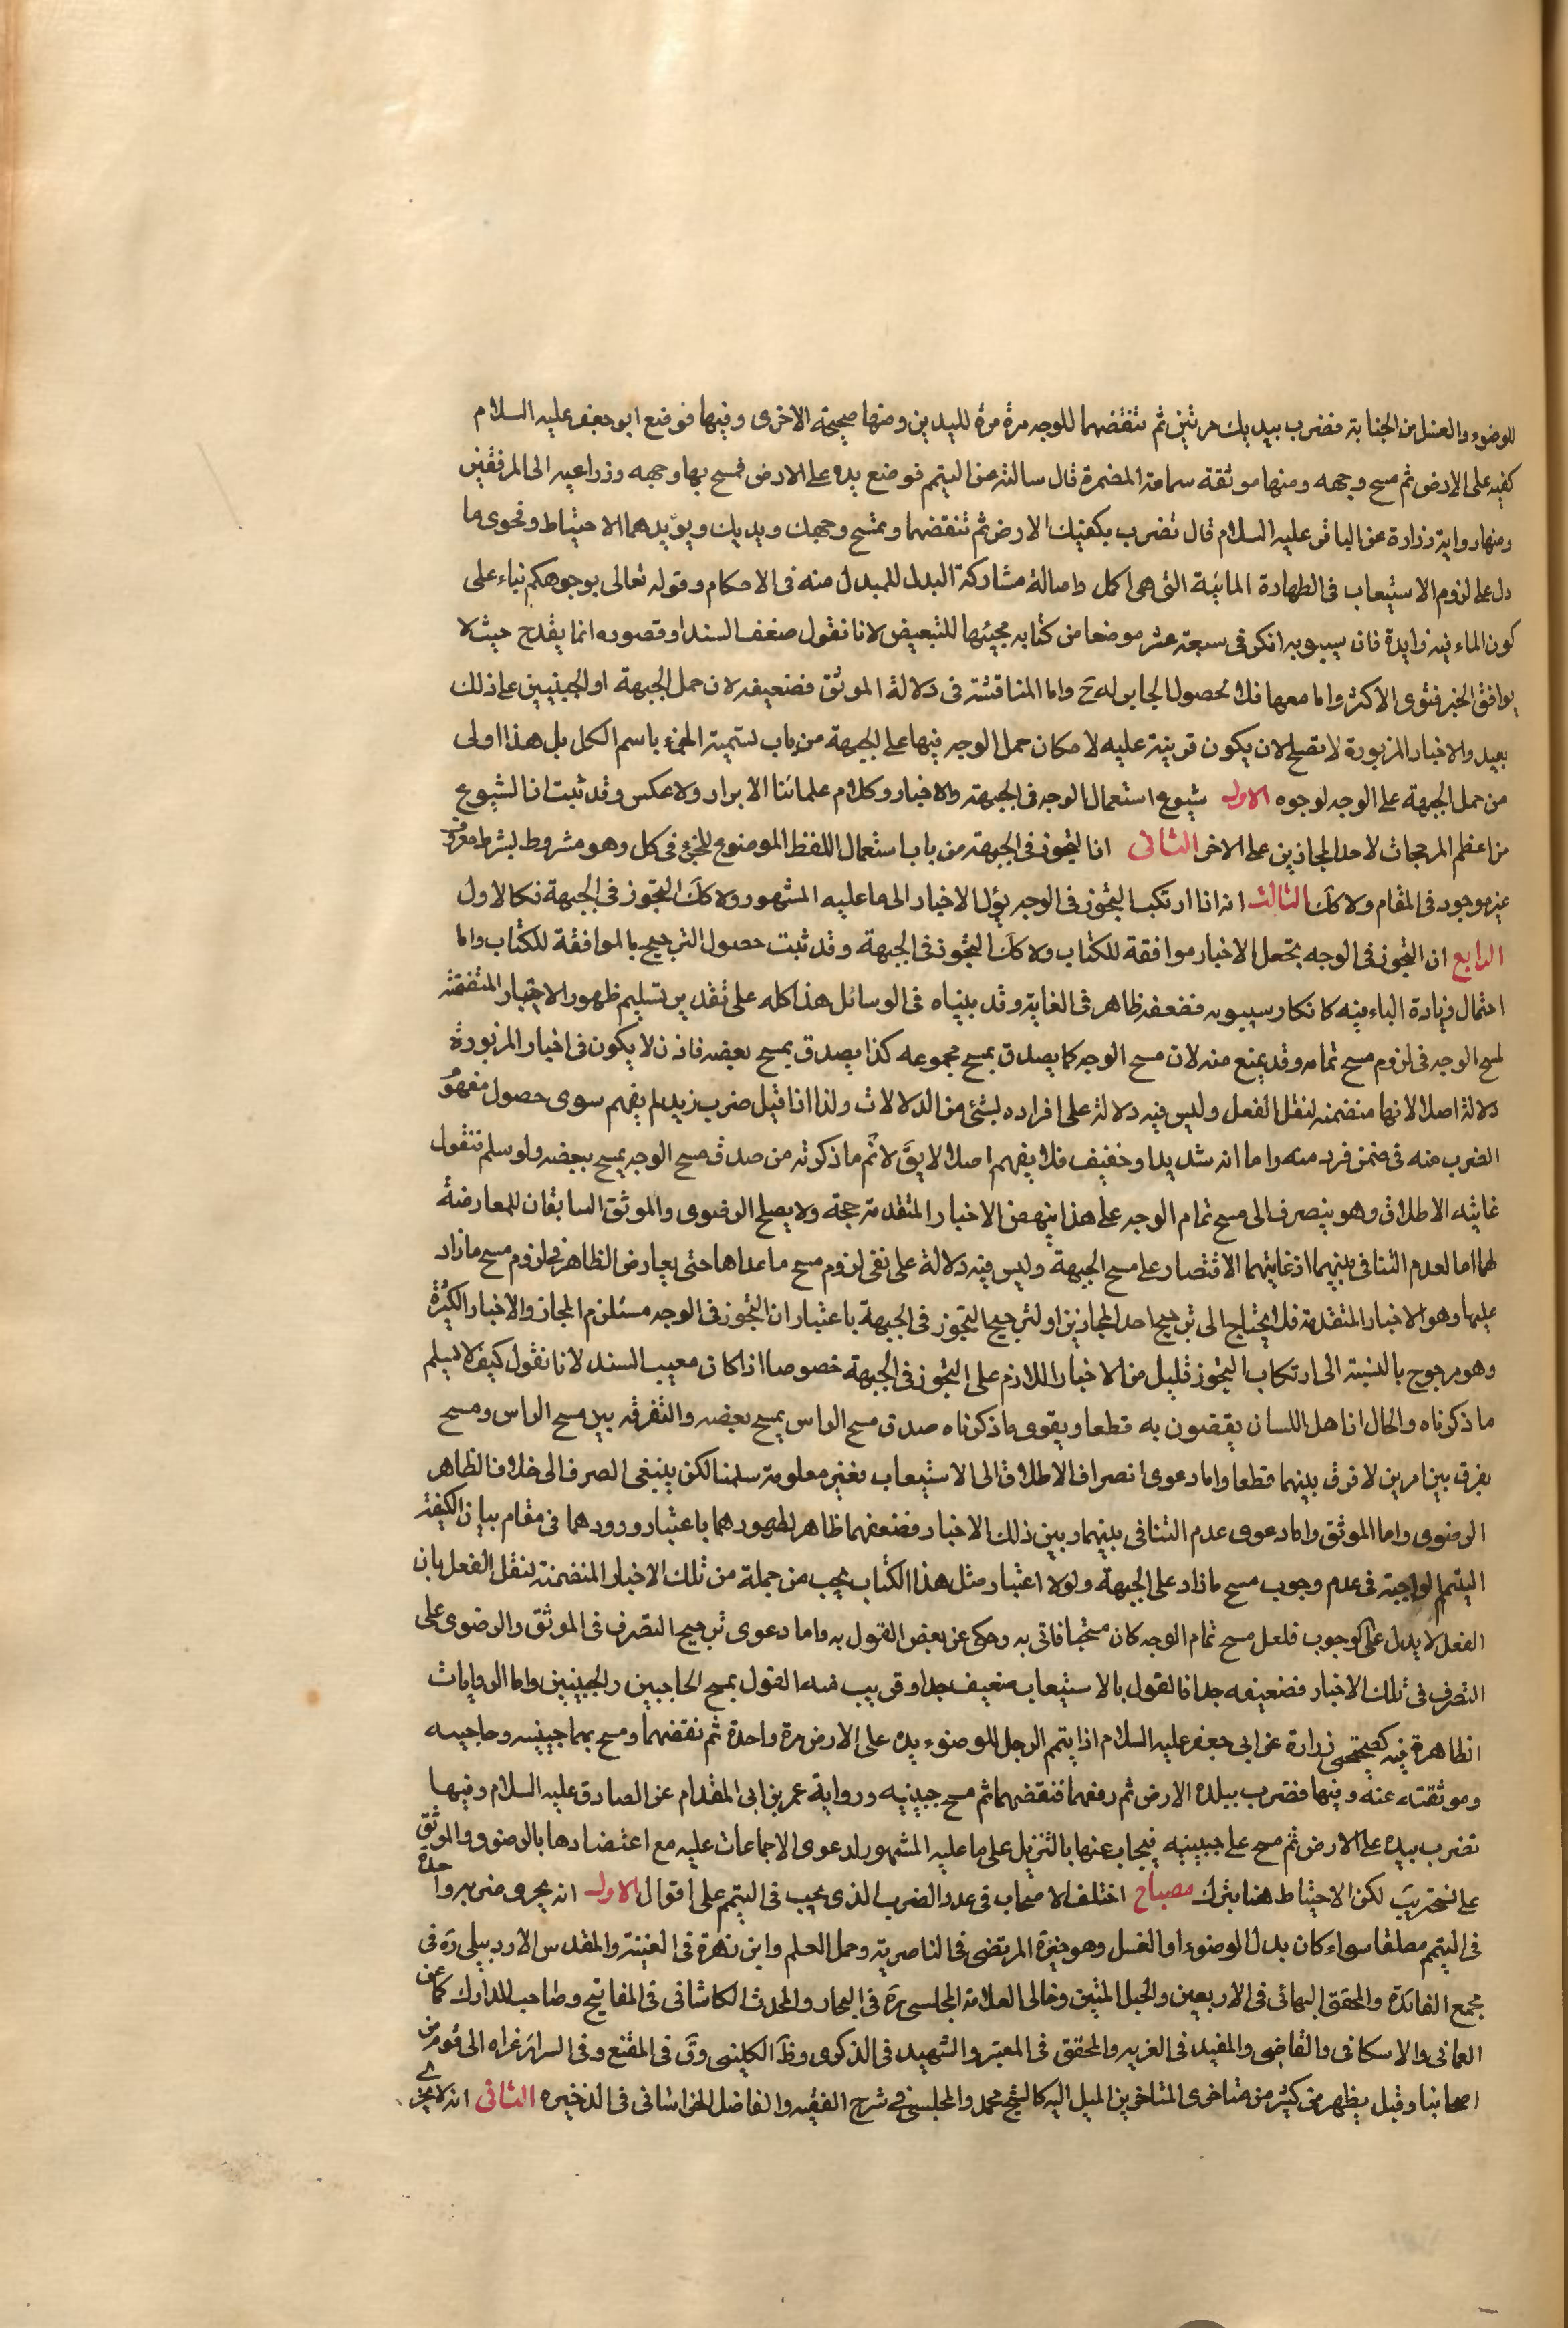 للوضوء والغسل من الجنابة فضرب بيديك مرتين ثم تنفضهما للوجه مرة مرة لليدين ومنها صحيحته الاخرى وفيها فوضع ابو جعفر عليه السلام
كفيه على الارض ثم مسح وجهه ومنها موثقة سماعة المضمرة قال سالته عن التيمم فوضع يده على الارض فمسح بها وجهه وذراعيه الى المرفقين
ومنها رواية زرارة عن الباقر عليه السلام قال تضرب بكفيك الارض ثم تنفضهما وتمسح وجهك ويديك ويؤيدهما الاحتياط وفحوى ما
دل على لزوم الاستيعاب فى الطهارة المائية التى هى اكمل واصالة مشاركة البدل للمبدل منه فى الاحكام وقوله تعالى بوجوهكم بناء على
كون الباء فيه زايدة فان سيبويه انكر فى سبعة عشر موضعا من كتابه مجيئها للتبعيض لانا نقول ضعف السند او قصوره انما يقدح حيث لا
يوافق الخبر فتوى الاكثر واما معها فلا لحصول الجابر له ح واما المناقشة فى دلالة الموثق فضعيفه لان حمل الجبهة او الجبينين على ذلك
بعيد والاخبار المزبورة لا تصلح لان يكون قرينة عليه لامكان حمل الوجه فيها على الجبهة من باب تسمية الجزء باسم الكل بل هذا اولى
من حمل الجبهة على الوجه لوجوه الاول شيوع استعمال الوجه فى الجبهة والاخبار وكلام علمائنا الابرار ولا عكس وقد ثبت ان الشيوع
من اعظم المرجحات لاحد المجازين على الاخر الثانى ان التجوز فى الجبهة من باب استعمال اللفظ الموضوع للجزء فى كل وهو مشروط بشرط معروف
غير موجود فى المقام ولا كك الثالث انه اذا ارتكب التجوز فى الوجه يؤل الاخبار الى ما عليه المشهور ولا كك التجوز فى الجبهة فكالاول
الرابع ان التجوز فى الوجه يجعل الاخبار موافقة للكتاب ولا كك التجوز فى الجبهة وقد ثبت حصول الترجيح بالموافقة للكتاب واما
احتمال زيادة الباء فيه كانكار سيبويه فضعفه ظاهر فى الغاية وقد بيناه فى الوسائل هذا كله على تقدير تسليم ظهور الاخبار المتضمنه
لمسح الوجه فى لزوم مسح تمامه وقد يمنع منه لان مسح الوجه كما يصدق بمسح مجموعه كذا يصدق بمسح بعضه فاذن لا يكون فى اخبار المزبورة
دلالة اصلا لانها متضمنه لنقل الفعل وليس فيه دلالة على افراده بشئ من الدلالات ولذا اذا قيل ضرب زيد لم يفهم سوى حصول مفهوم
الضرب منه فى ضمن فرد منه واما انه شديد او خفيف فلا يفهم اصلا لا يق لا ثم ما ذكرته من صدق مسح الوجه بمسح ببعضه ولو سلم فنقول
غايته الاطلاق وهو ينصرف الى مسح تمام الوجه على هذا ينهض الاخبار المتقدمة حجة ولا يصلح الرضوى والموثق السابقان للمعارضة
لهما اما لعدم التنافى بينهما اذ غايتهما الاقتصار على مسح الجبهة وليس فيه دلالة على نفى لزوم مسح ما عداها حتى يعارض الظاهر فى لزوم مسح ما زاد
عليها وهو الاخبار المتقدمة فلا يحتاج الى ترجيح احد المجازين او لترجيح التجوز فى الجبهة باعتبار ان التجوز فى الوجه مستلزم المجاز والاخبار الكثيرة
وهو مرجوح بالنسبة الى ارتكاب التجوز قليل من الاخبار اللازم على التجوز فى الجبهة خصوصا اذا كان معيب السند لانا نقول كيف لا يسلم
ما ذكرناه والحال ان اهل اللسان يقضون به قطعا ويقوى ما ذكرناه صدق مسح الراس بمسح بعضه والتفرقه بين مسح الراس ومسح
بفرق بين امرين لا فرق بينهما قطعا واما دعوى انصراف الاطلاق الى الاستيعاب فغير معلومة سلمنا لكن ينبغى الصرف الى خلاف الظاهر
الرضوى واما الموثق واما دعوى عدم التنافى بينهما وبين ذلك الاخبار فضعفها ظاهر لظهورهما باعتبار ورودهما فى مقام بيان الكيفية
التيمم الواجبة فى عدم وجوب مسح ما زاد على الجبهة ولولا اعتبار مثل هذا الكتاب يجب من جملة من تلك الاخبار المتضمنة لنقل الفعل بان
الفعل لا يدل على الوجوب فلعل مسح تمام الوجه كان مستحبا فاتى به وحكى عن بعض القول به واما دعوى ترجيح التصرف فى الموثق والرضوى على
التصرف فى تلك الاخبار فضعيفه جدا فالقول بالاستيعاب ضعيف جدا وقريب منه القول بمسح الحاجبين والجبينين واما الروايات
الظاهرة فيه كصحيحتى زرارة عن ابى جعفر عليه السلام اذا يتمم الرجل للوضوء يده على الارض مرة واحدة ثم نفضهما ومسح بهما جبينيه وحاجبيه
وموثقته عنه وفيها فضرب بيده الارض ثم رفعهما فنفضهما ثم مسح جبينيه ورواية عمر بن ابى المقدام عن الصادق عليه السلام وفيها
تضرب بيده على الارض ثم مسح على جبينيه فيجاب عنها بالتنزيل على ما عليه المشهور لدعوى الاجماعات عليه مع اعتضادها بالرضوى والموثق
على لكن الاحتياط هنا بترك مصباح اختلف الاصحاب فى عدد الضرب الذى يجب فى التيمم على اقوال الاول انه يجرى ضربه واحدة
فى التيمم مطلقا سواء كان بدل الوضوء او الغسل وهو خيرة المرتضى فى الناصرية وجمل العلم وابن زهرة فى الغنية والمقدس الاردبيلى ره فى
مجمع الفائدة والمحقق البهائى فى الاربعين والحبل المتين وخالى العلامة المجلسى ره فى البحار والمحدث الكاشانى فى المفاتيح وصاحب المدارك كما عن
العمانى والاسكافى والقاضى والمفيد فى الغريه والمحقق فى المعتبر والشهيد فى الذكرى وظ الكلينى وق فى المقنع وفى السرائر عزاه الى قوم من
اصحابنا وقيل يظهر من كثير من متاخرى المتاخرين الميل اليه كالشيخ محمد والمجلسى فى شرح الفقيه والفاضل الخراسانى فى الذخيره الثانى انه لا يجزى